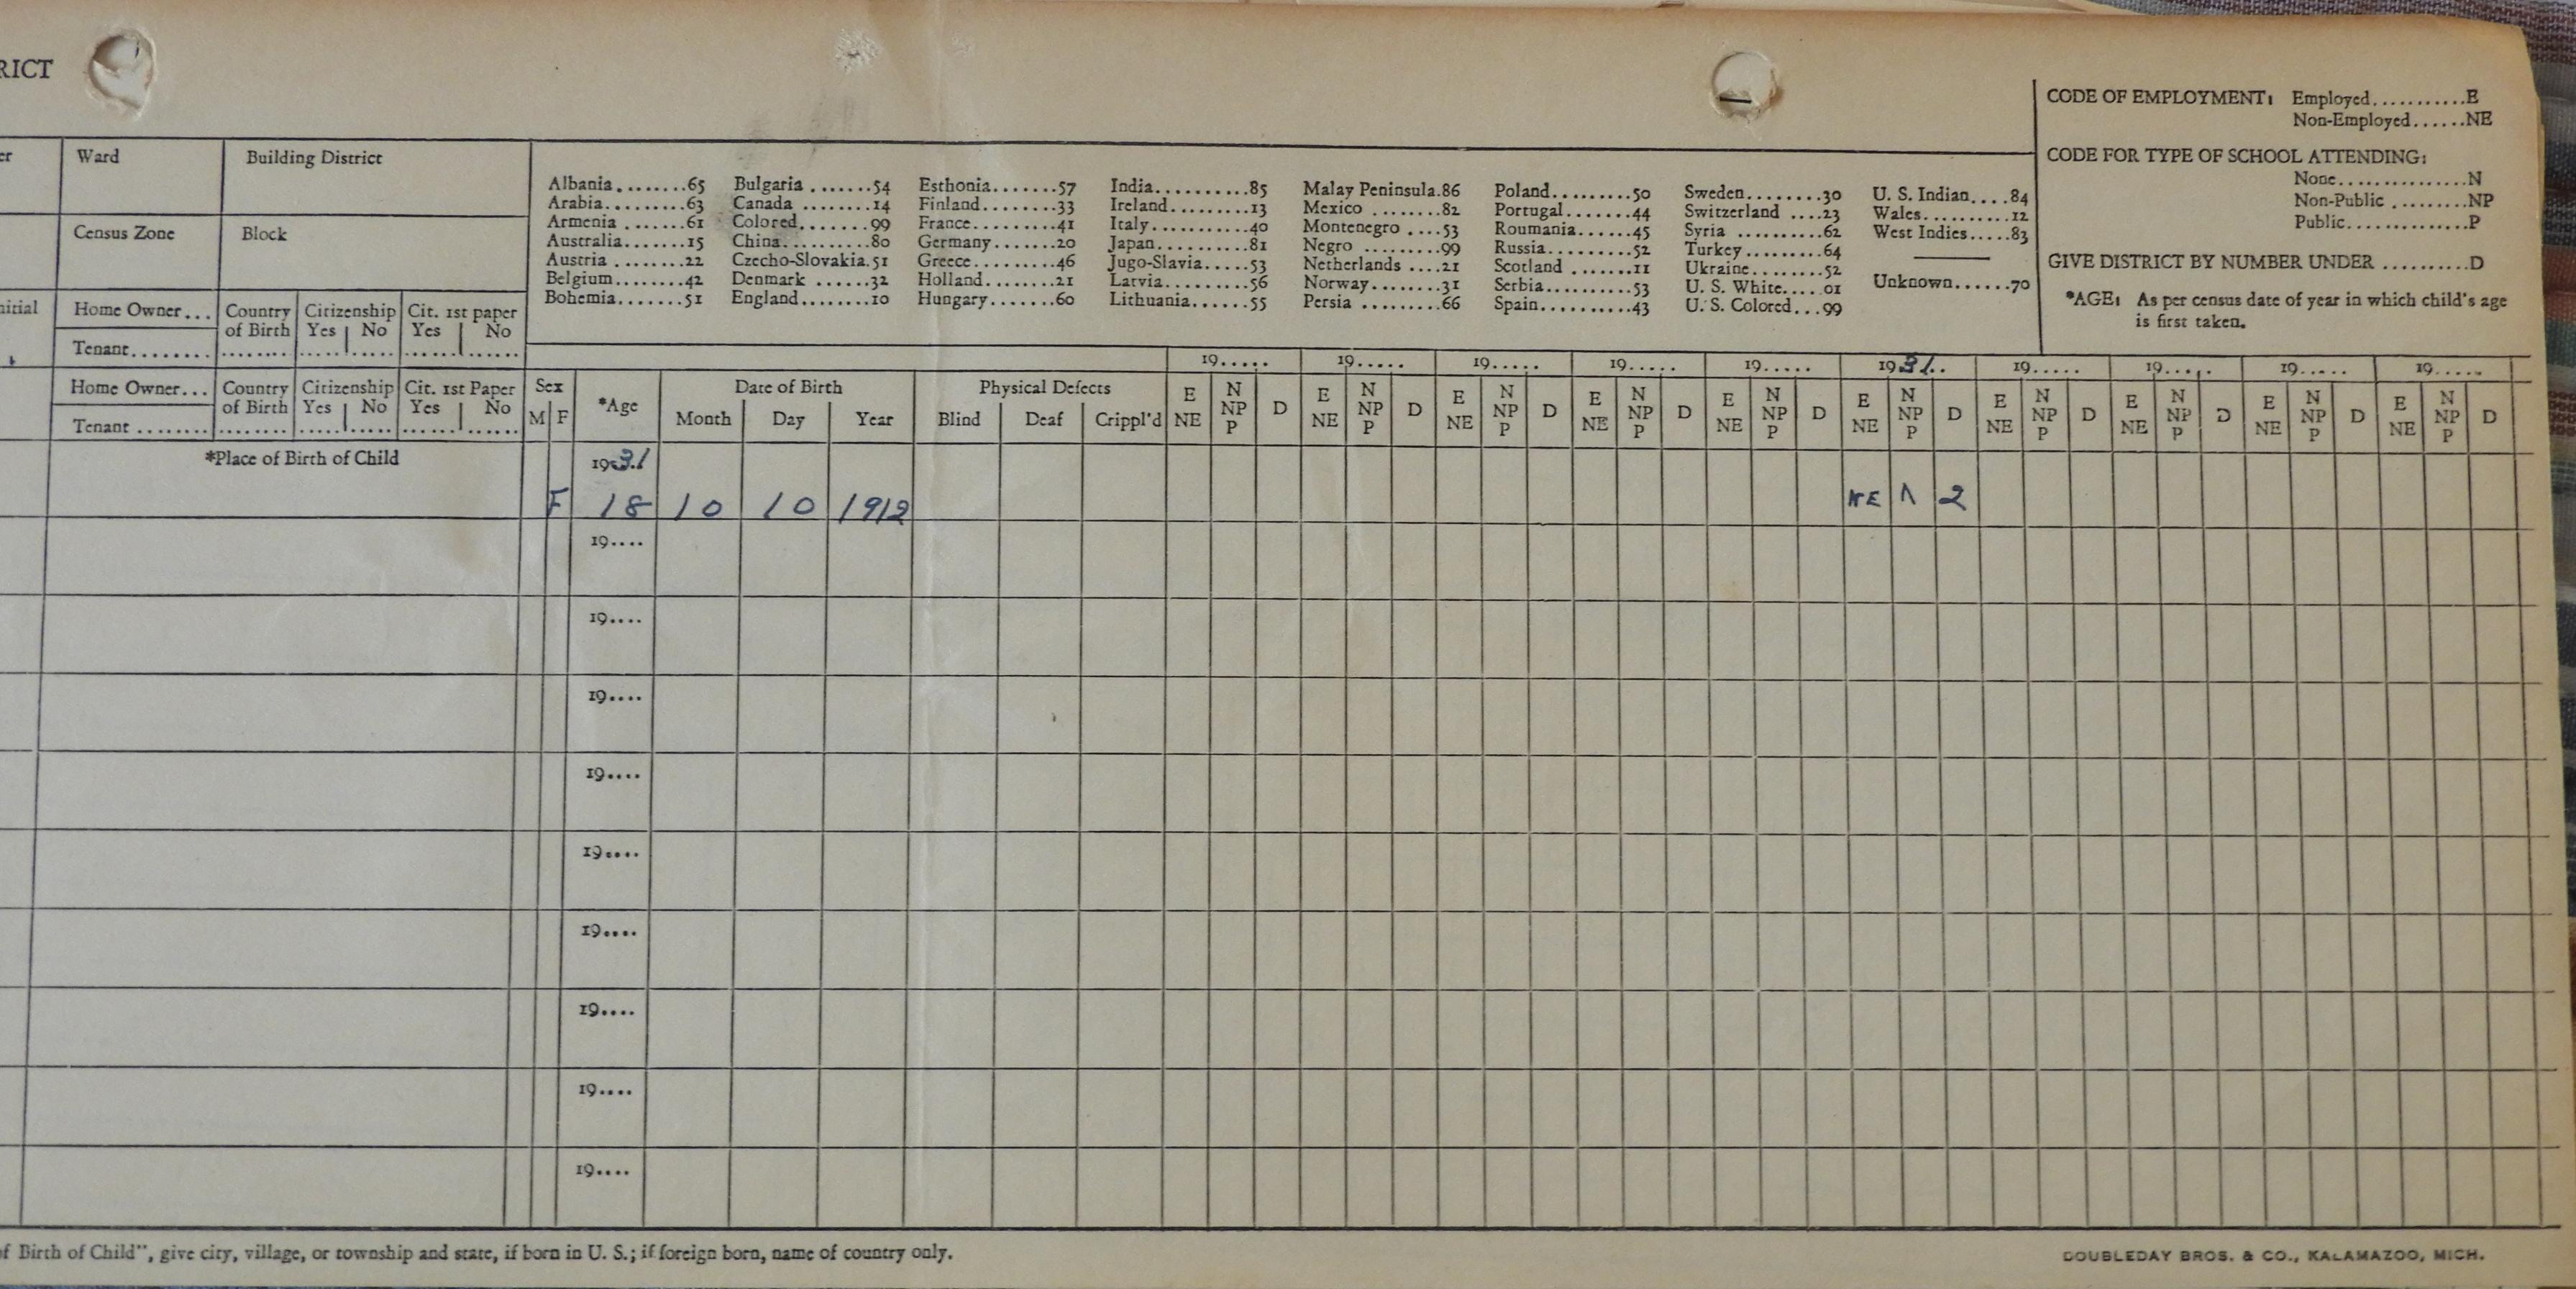 RICT
CODE OF EMPLOYMENT: Employed...........E
Non-Employed......NE
CODE FOR TYPE OF SCHOOL ATTENDING:
None..............N
Non-Public .........NP
Public..............P
GIVE DISTRICT BY NUMBER UNDER ..........D
*AGE: As per census date of year in which child's age
is first taken.
er Ward Building District
Census Zone Block
Albania........65 Bulgaria .......54 Esthonia.......57 India..........85 Malay Peninsula.86 Poland.........50 Sweden........30 U. S. Indian....84
Arabia.........63 Canada ........14 Finland........33 Ireland.........13 Mexico ........82 Portugal.......44 Switzerland ....23 Wales..........12
Armenia .......61 Colored........99 France.........41 Italy...........40 Montenegro ....53 Roumania......45 Syria .........62 West Indies.....83
Australia.......15 China..........80 Germany.......20 Japan..........81 Negro .........99 Russia.........52 Turkey.........64
Austria ........22 Czecho-Slovakia.51 Greece.........46 Jugo-Slavia.....53 Netherlands ....21 Scotland .......11 Ukraine........52
Belgium........42 Denmark ......32 Holland........21 Latvia.........56 Norway........31 Serbia.........53 U. S. White.....01 Unknown......70
Bohemia.......51 England........10 Hungary.......60 Lithuania......55 Persia .........66 Spain..........43 U. S. Colored...99
nitial Home Owner... Country of Birth Citizenship Yes No Cit. 1st paper Yes No
Tenant........
19..... 19..... 19..... 19..... 19..... 1931.. 19..... 19..... 19..... 19.....
Home Owner... Country of Birth Citizenship Yes No Cit. 1st Paper Yes No
Tenant ........
Sex M F *Age Date of Birth Month Day Year Physical Defects Blind Deaf Crippl'd
E NE N NP P D E NE N NP P D E NE N NP P D E NE N NP P D E NE N NP P D E NE N NP P D E NE N NP P D E NE N NP P D E NE N NP P D E NE N NP P D
*Place of Birth of Child 1931
F 18 10 10 1912 NE N 2
19....
19....
19....
19....
19....
19....
19....
19....
19....
f Birth of Child", give city, village, or township and state, if born in U. S.; if foreign born, name of country only.
DOUBLEDAY BROS. & CO., KALAMAZOO, MICH.